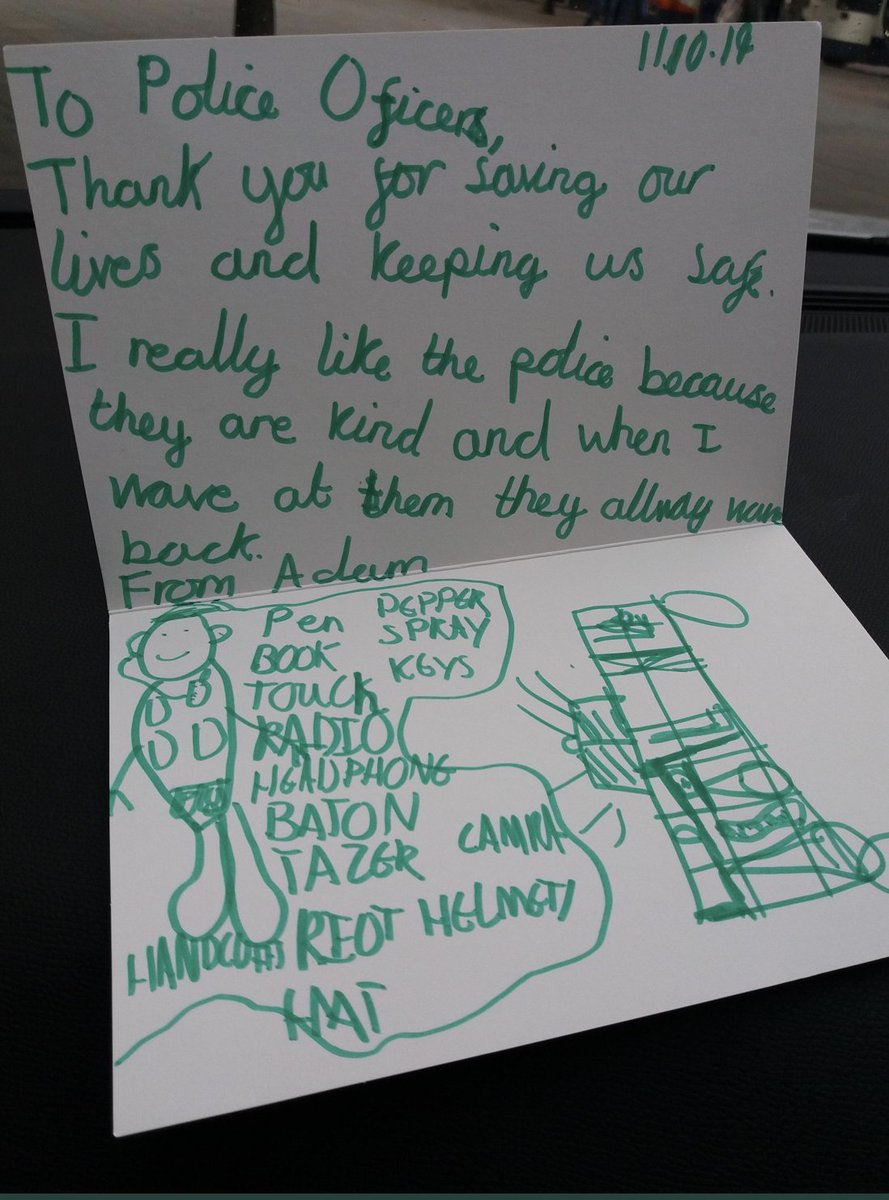 11.10.19
To Police Oficers,
Thank you for saving our
lives and keeping us safe.
I really like the police because
they are kind and when I
wave at them they allway wave
back.
From Adam
Pen
BOOK
TOUCH
RADIO
HEADPHONE
BATON
TAZER
PEPPER
SPRAY
KEYS
CAMRA
HANDCUFFS
RIOT HELMETY
HAT